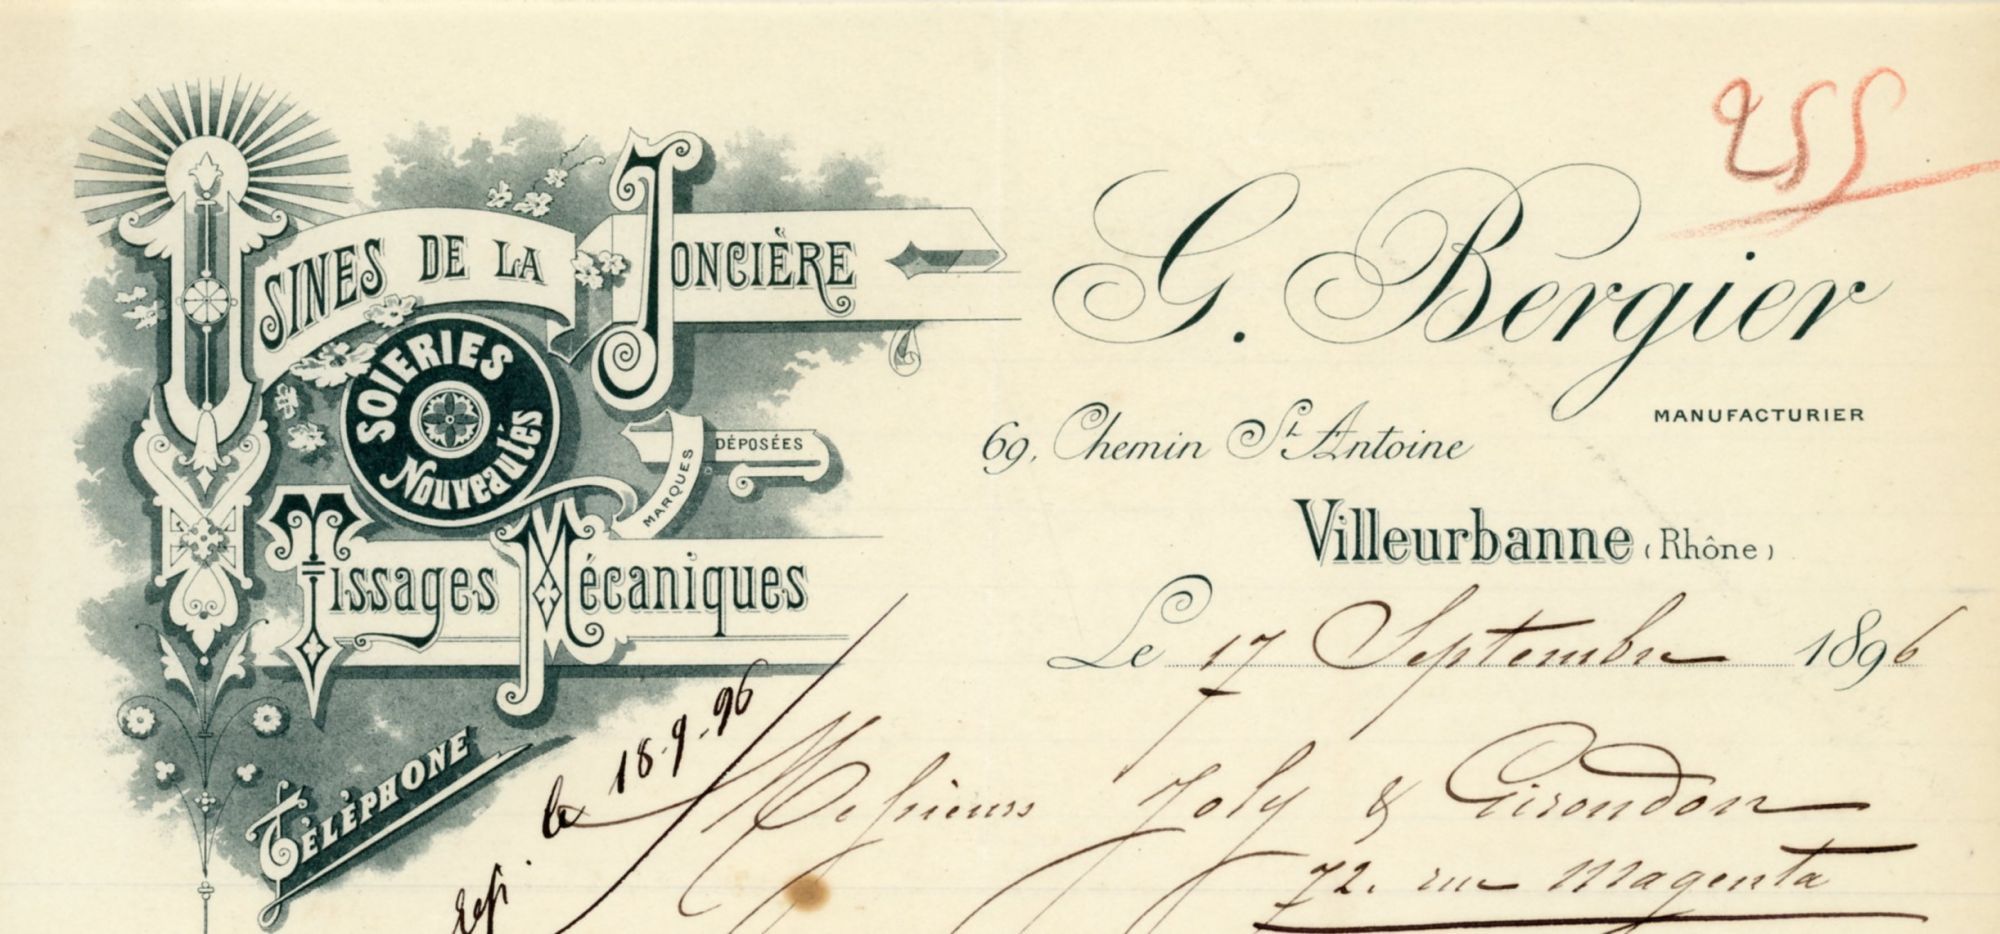 255
USINES DE LA JONCIÈRE
SOIERIES
Nouveautés
MARQUES DÉPOSÉES
Tissages Mécaniques
TÉLÉPHONE
G. Bergier
MANUFACTURIER
69, Chemin St Antoine
Villeurbanne (Rhône)
Le 17 Septembre 1896
Rép. le 18-9-96
Messieurs Joly & Girondon
72. rue Magenta